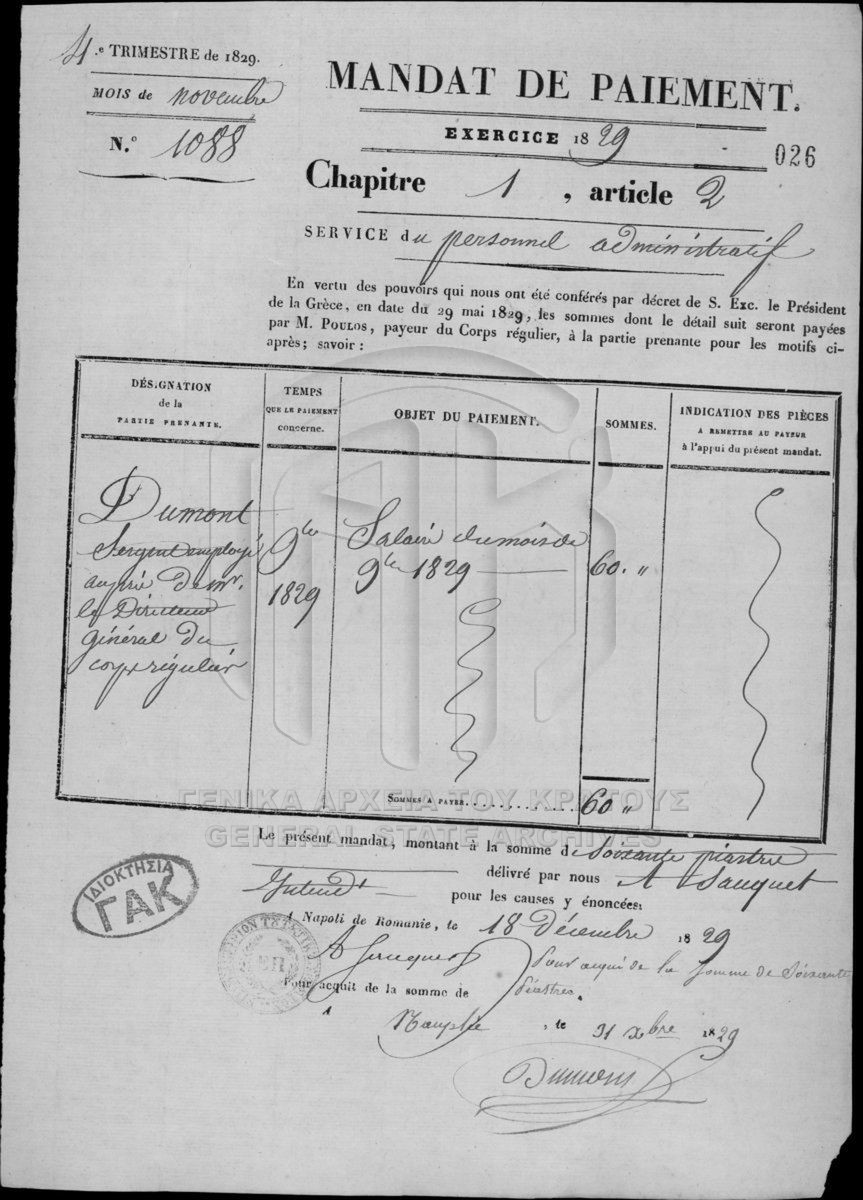 4.e TRIMESTRE de 1829.
MOIS de novembre
N.o 1088
MANDAT DE PAIEMENT.
EXERCICE 1829
026
Chapitre 1, article 2
SERVICE du personnel administratif
En vertu des pouvoirs qui nous ont été conférés par décret de S. Exc. le Président
de la Grèce, en date du 29 mai 1829, les sommes dont le détail suit seront payées
par M. POULOS, payeur du Corps régulier, à la partie prenante pour les motifs ci-
après; savoir :
DÉSIGNATION
de la
PARTIE PRENANTE.
TEMPS
QUE LE PAIEMENT
concerne.
OBJET DU PAIEMENT.
SOMMES.
INDICATION DES PIÈCES
A REMETTRE AU PAYEUR
à l'appui du présent mandat.
Dumont
Sergent employé
auprè de mr.
le Directeur
général du
corps régulier
9bre
1829
Salair du mois de
9bre 1829
60. "
SOMMES A PAYER
60 "
ΓΕΝΙΚΑ ΑΡΧΕΙΑ ΤΟΥ ΚΡΑΤΟΥΣ
GENERAL STATE ARCHIVES
Le présent mandat, montant à la somme de Soixante piastres
délivré par nous A Sauquet
Intend.t pour les causes y énoncées.
A Napoli de Romanie, le 18 Décembre 1829
ΙΔΙΟΚΤΗΣΙΑ
ΓΑΚ
Pour acqui de la Somme de Soixante
Piastres.
Pour acquit de la somme de
A Nauplie, le 31 xbre 1829
Dumont